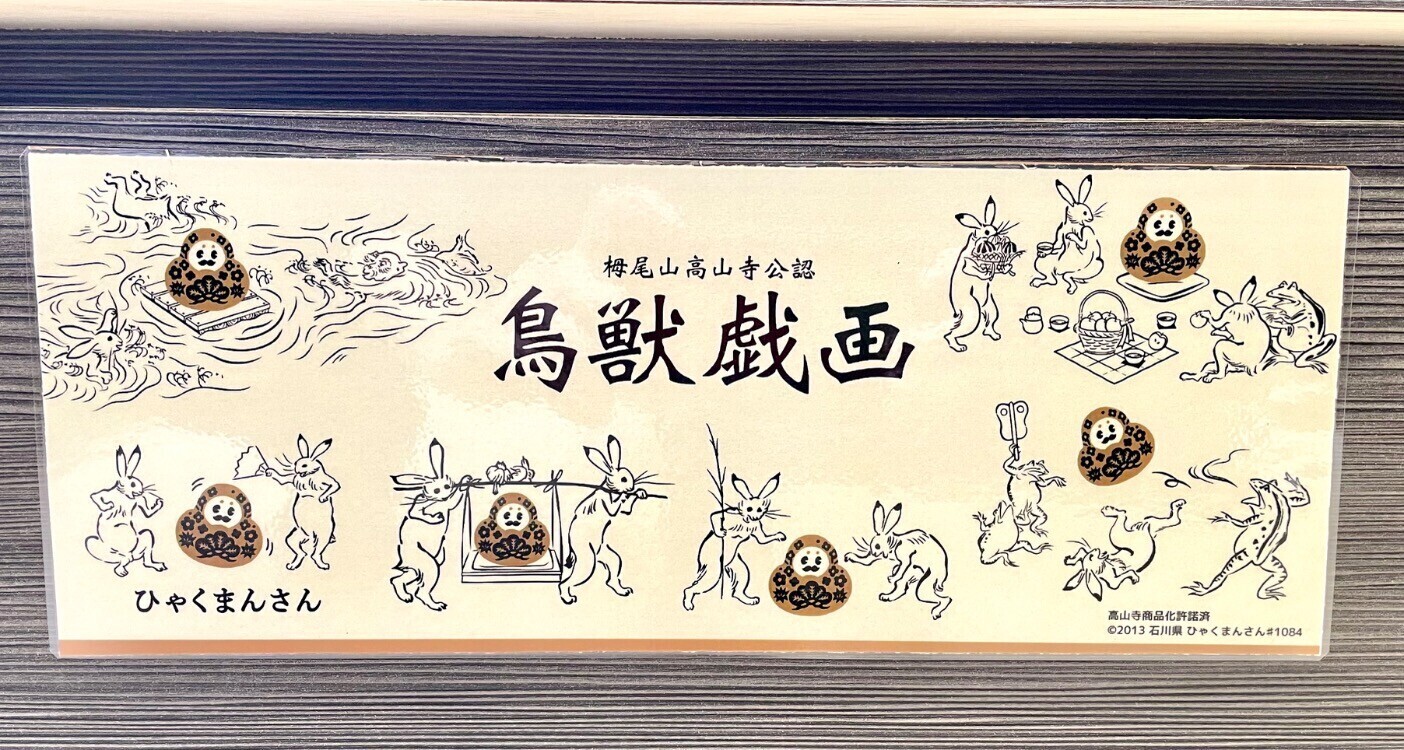 栂尾山高山寺公認
鳥獣戯画
ひゃくまんさん
高山寺商品化許諾済
©2013 石川県 ひゃくまんさん#1084